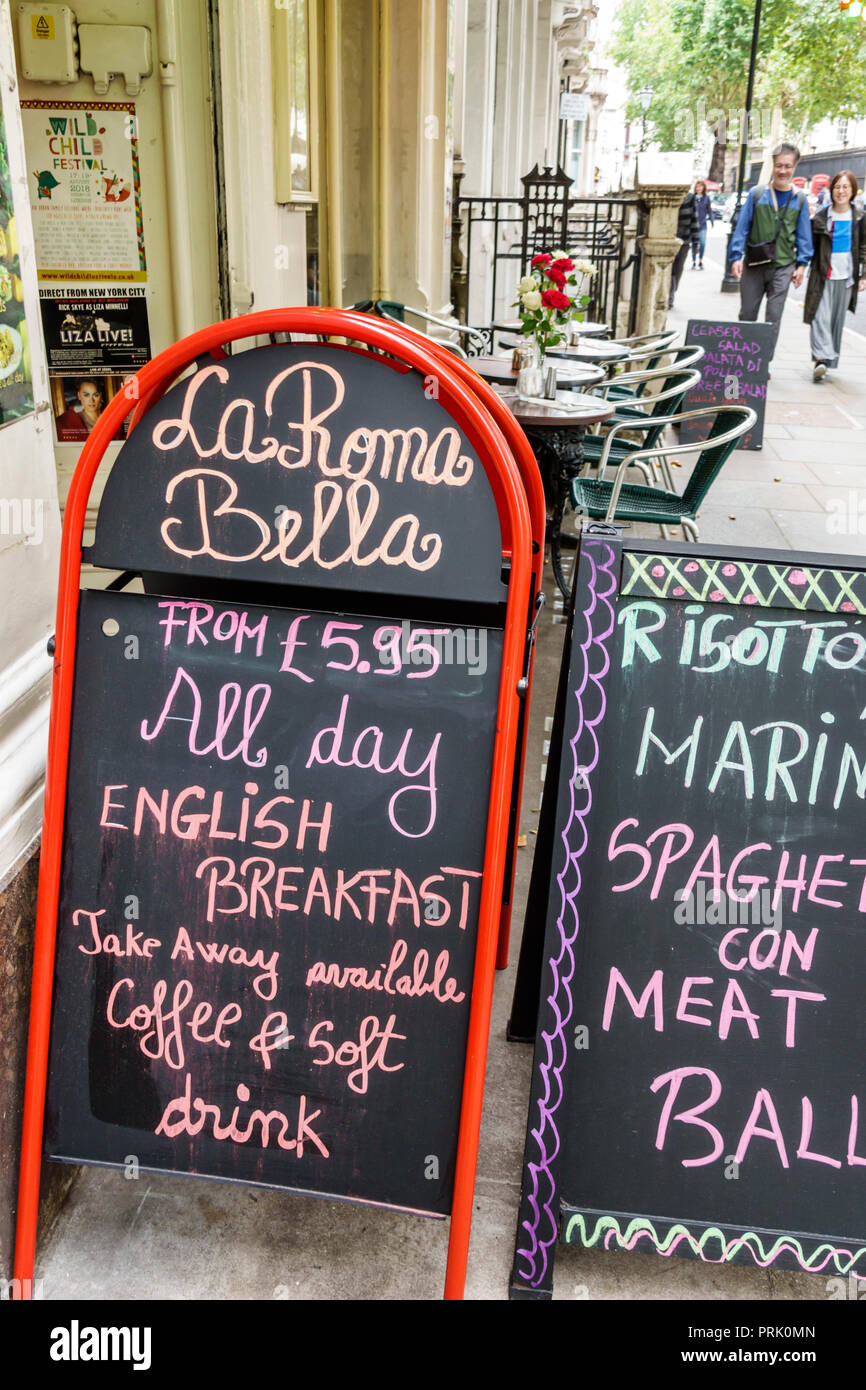 WILD
CHILD
FESTIVAL
17-19
AUGUST
2018
www.wildchildfestival.co.uk
DIRECT FROM NEW YORK CITY
RICK SKYE AS LIZA MINNELLI IN
LIZA LIVE!
La Roma
Bella
FROM £5.95
All day
ENGLISH
BREAKFAST
Take Away available
Coffee & Soft
drink
CEASER
SALAD
SALATA DI
POLLO
SALAD
RISOTTO
MARIN
SPAGHET
CON
MEAT
BALL
alamy
Image ID: PRK0MN
www.alamy.com